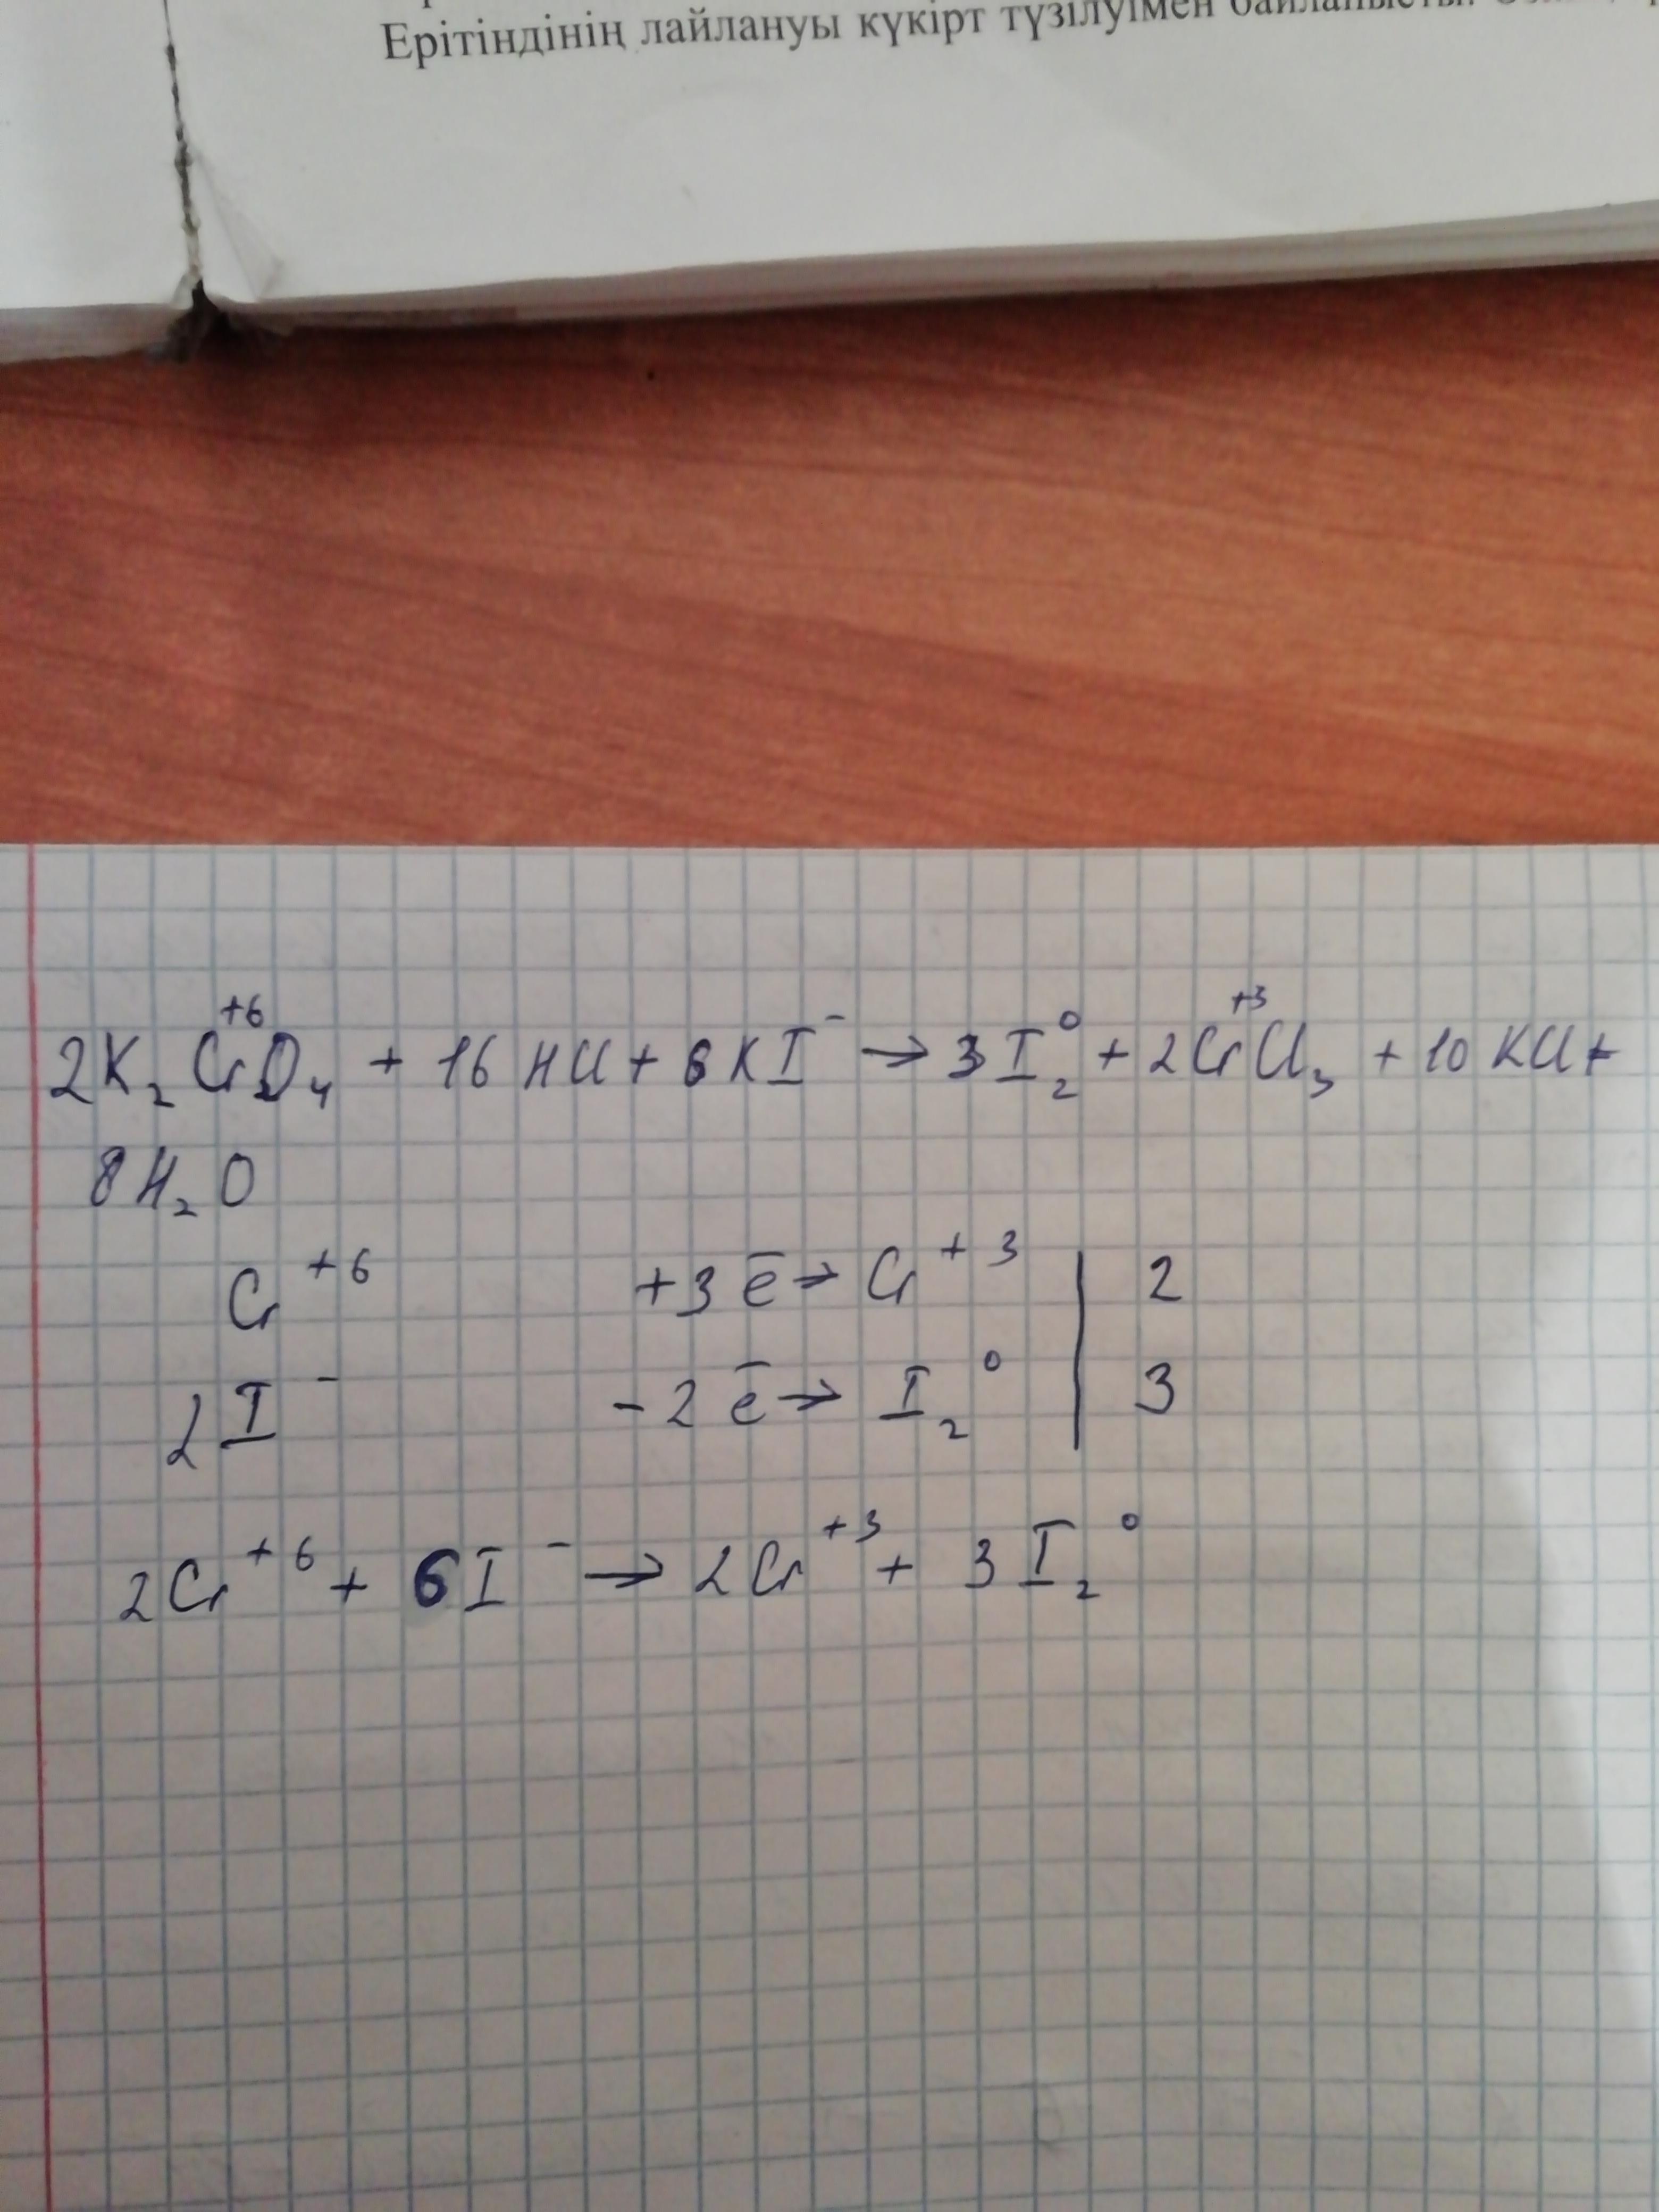 Ерітіндінің лайлануы күкірт түзілуімен байланысты.
2K₂Cr⁺⁶O₄ + 16HCl + 6KI⁻ → 3I₂⁰ + 2Cr⁺³Cl₃ + 10KCl +
8H₂O
Cr⁺⁶ +3ē → Cr⁺³ | 2
2I⁻ -2ē → I₂⁰ | 3
2Cr⁺⁶ + 6I⁻ → 2Cr⁺³ + 3I₂⁰